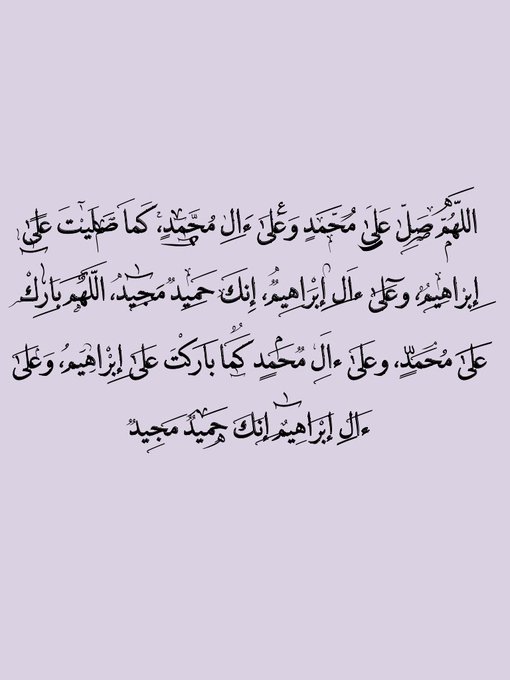 اللَّهُمَّ صَلِّ عَلَىٰ مُحَمَّدٍ وَعَلَىٰ ءَالِ مُحَمَّدٍ، كَمَا صَلَّيْتَ عَلَىٰ
إِبْرَاهِيمَ، وعَلَىٰ ءَالِ إِبْرَاهِيمَ، إِنَّكَ حَمِيدٌ مَجِيدٌ، اللَّهُمَّ بَارِكْ
عَلَىٰ مُحَمَّدٍ، وعَلَىٰ ءالِ مُحَمَّدٍ كَمَا بَارَكْتَ عَلَىٰ إِبْرَاهِيمَ، وَعَلَىٰ
ءَالِ إِبْرَاهِيمَ إِنَّكَ حَمِيدٌ مَجِيدٌ